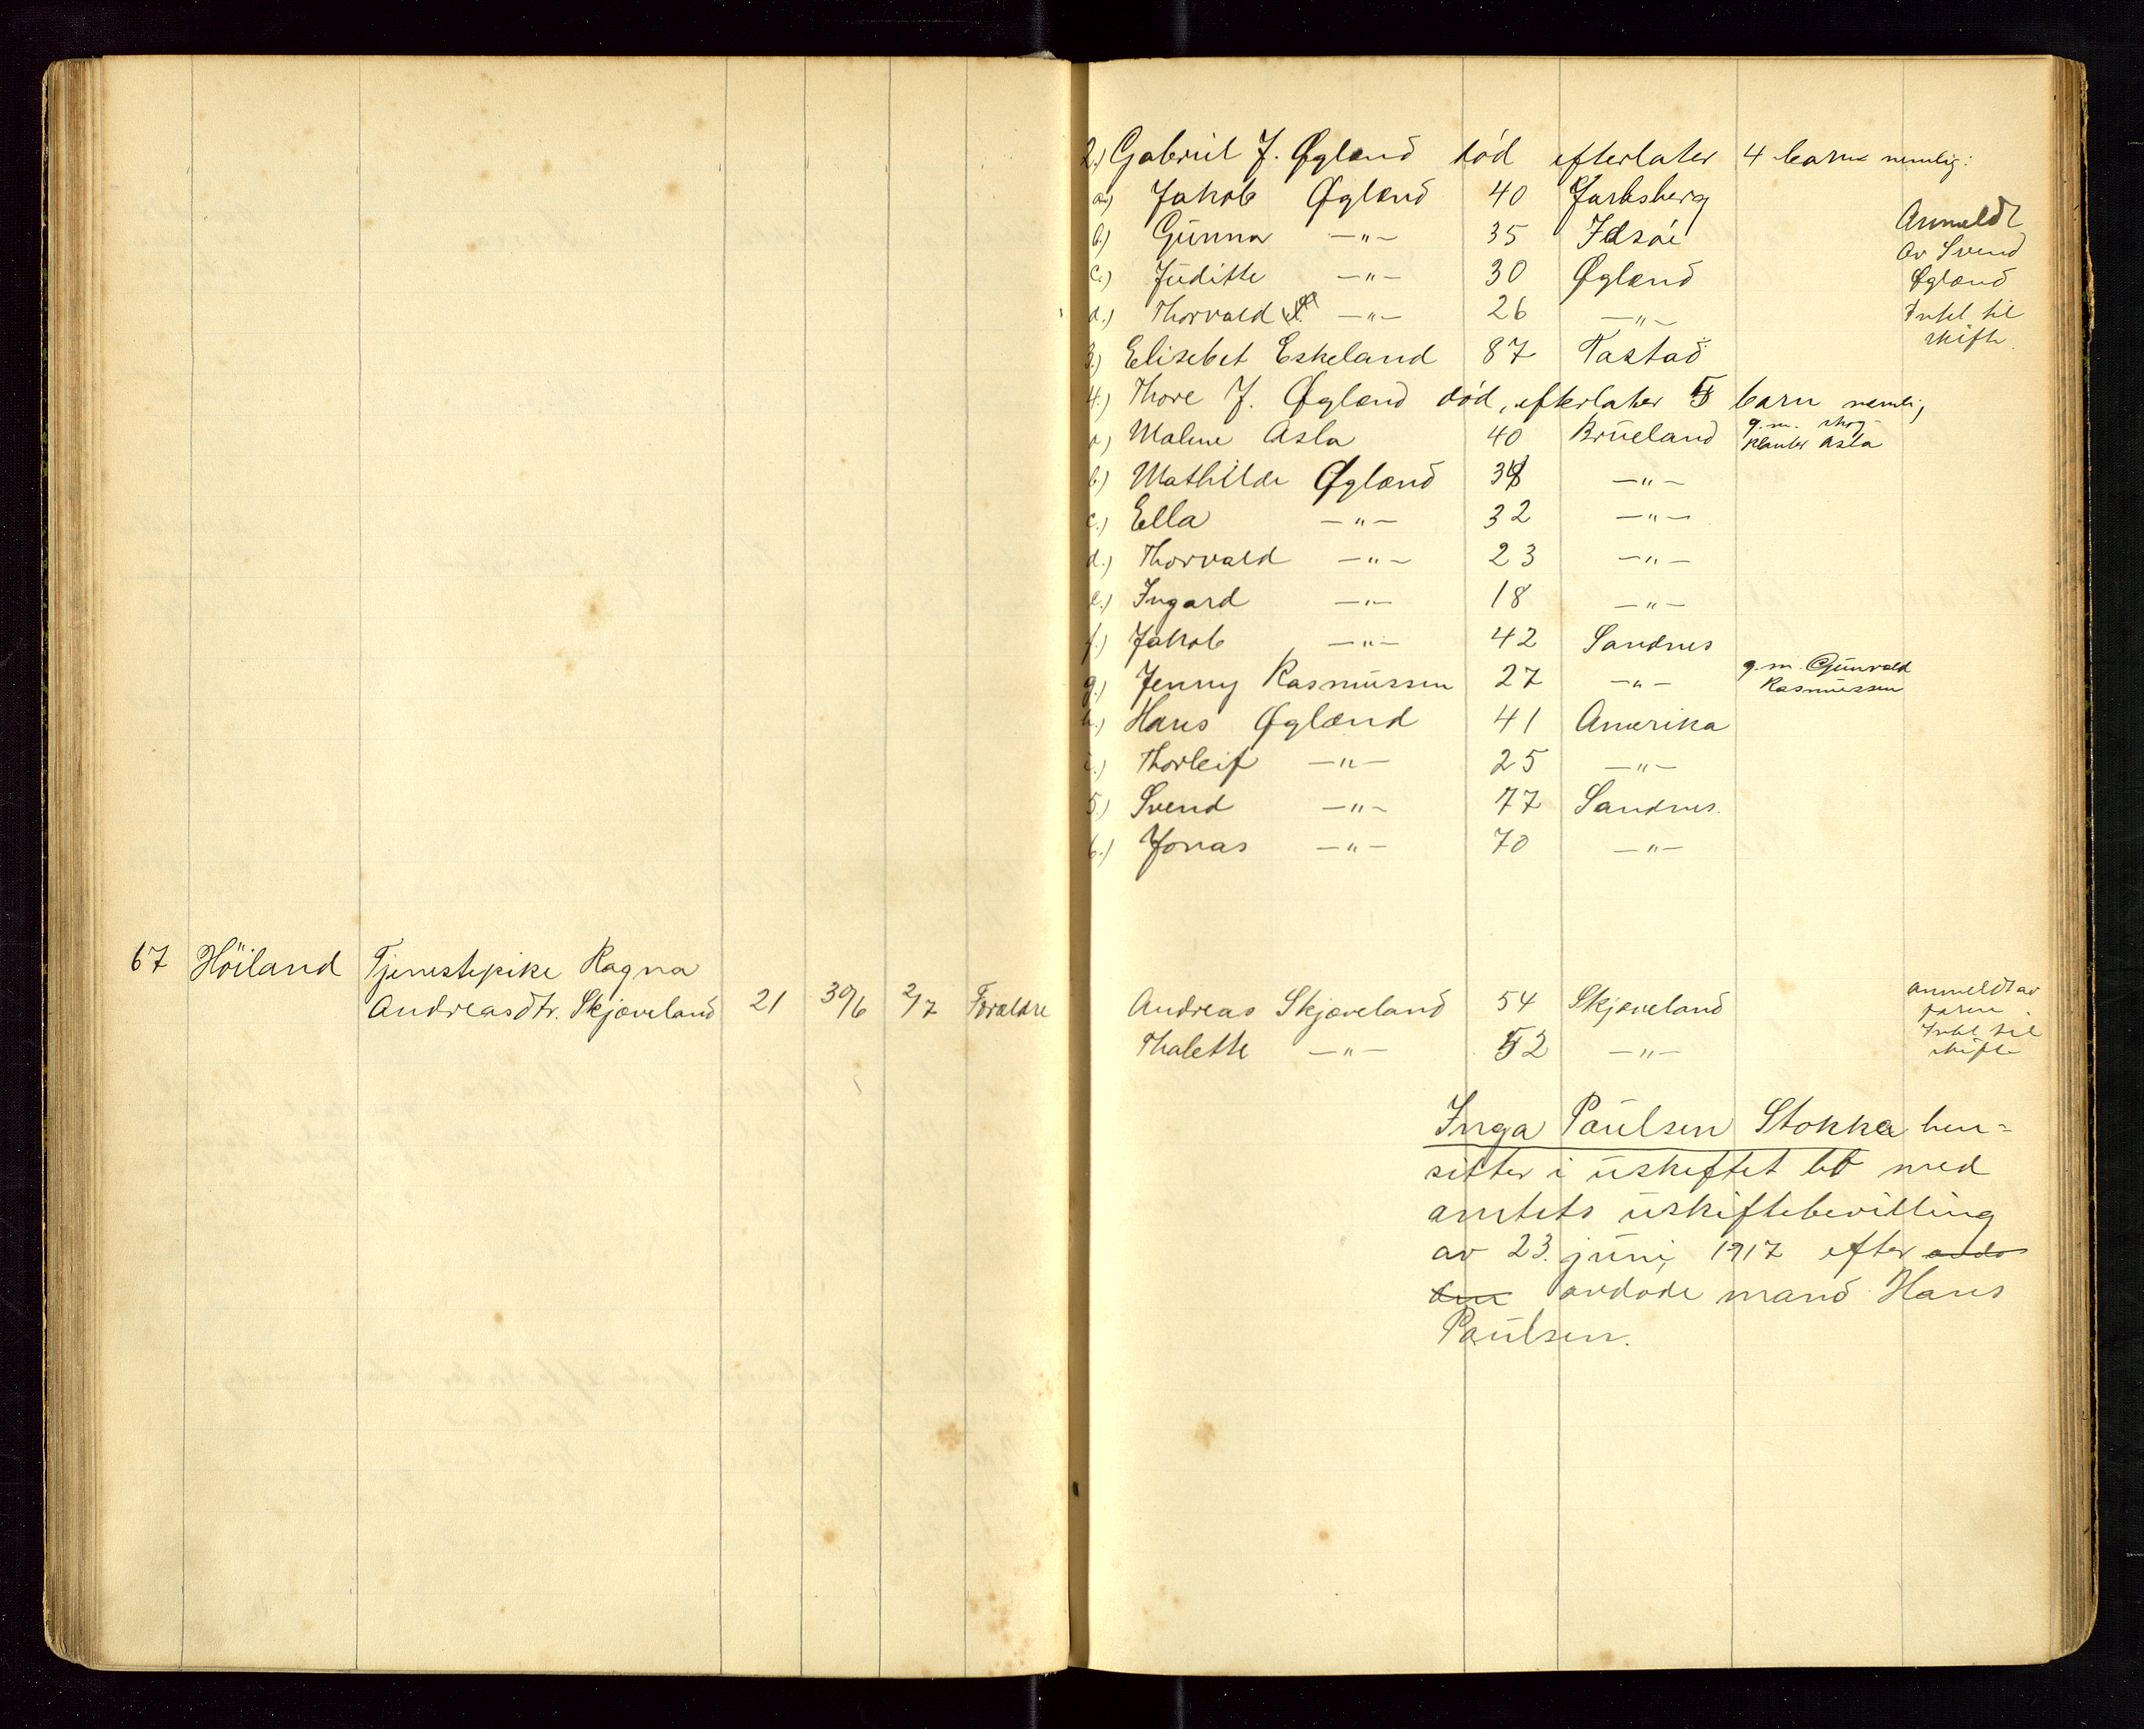 2.) Gabriel J. Øgland död efterlater 4 barn nemlig:
a.) Jakob Øgland 40 Jarlsberg
b.) Gunna —"— 35 Idsöe
c.) Juditte —"— 30 Øgland
d.) Thorvald —"— 26 —"—
Anmeldt
av Svend
Øgland
Intet til
skifte.
3.) Elisebet Eskeland 87 Tastad
4.) Thore J. Øgland död, efterlater 5 barn nemlig
a) Malene Asla 40 Brueland g. m. skog-
planter Asla
b.) Mathilde Øgland 38 —"—
c.) Ella —"— 32 —"—
d.) Thorvald —"— 23 —"—
e.) Ingard —"— 18 —"—
f.) Jakob —"— 42 Sandnes
g.) Jenny Rasmussen 27 —"— g. m. Gunvald
Rasmussen
h.) Hans Øgland 41 Amerika
i.) Thorleif —"— 25 —"—
5.) Svend —"— 77 Sandnes.
6.) Jonas —"— 70 —"—
67 Höiland Tjenestepike Ragna
Andreasdtr. Skjæveland 21 30/6 2/7 Forældre Andreas Skjæveland 54 Skjæveland
Thalette —"— 52 —"—
anmeldt av
faren.
Intet til
skifte
Inga Paulsen Stokka hen-
sitter i uskiftet bo med
amtets uskiftebevilling
av 23. juni 1917 efter avdö
den avdöde mand Hans
Paulsen.